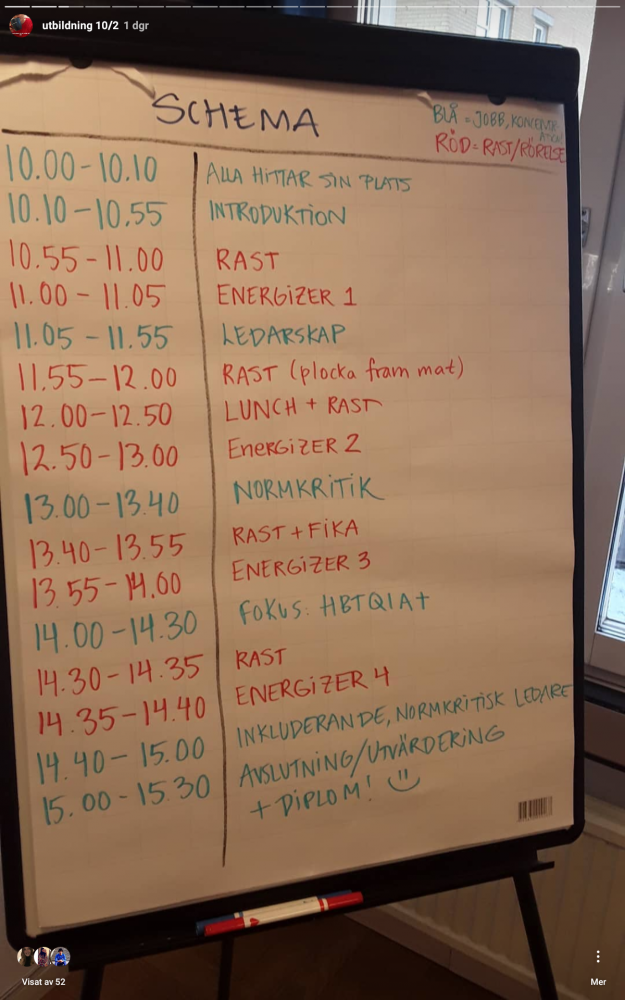 utbildning 10/2 1 dgr
SCHEMA
BLÅ = JOBB, KONCENTRATION!
RÖD = RAST/RÖRELSE
10.00-10.10 ALLA HITTAR SIN PLATS
10.10-10.55 INTRODUKTION
10.55-11.00 RAST
11.00-11.05 ENERGIZER 1
11.05-11.55 LEDARSKAP
11.55-12.00 RAST (plocka fram mat)
12.00-12.50 LUNCH + RAST
12.50-13.00 ENERGIZER 2
13.00-13.40 NORMKRITIK
13.40-13.55 RAST + FIKA
13.55-14.00 ENERGIZER 3
14.00-14.30 FOKUS: HBTQIA+
14.30-14.35 RAST
14.35-14.40 ENERGIZER 4
14.40-15.00 INKLUDERANDE, NORMKRITISK LEDARE
15.00-15.30 AVSLUTNING/UTVÄRDERING
+ DIPLOM!
Visat av 52
Mer